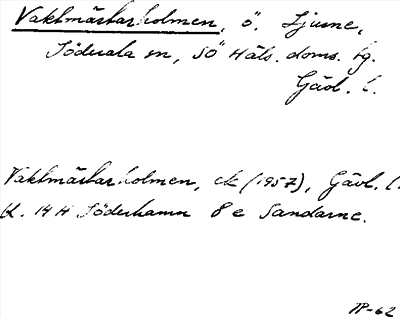 Vaktmästarholmen, ö. Ljusne,
Söderala sn, SÖ Häls. doms. fg.
Gävl. l.
Vaktmästarholmen, ek (1957), Gävl. l.
bl. 14 H Söderhamn 8 e Sandarne.
TP-62